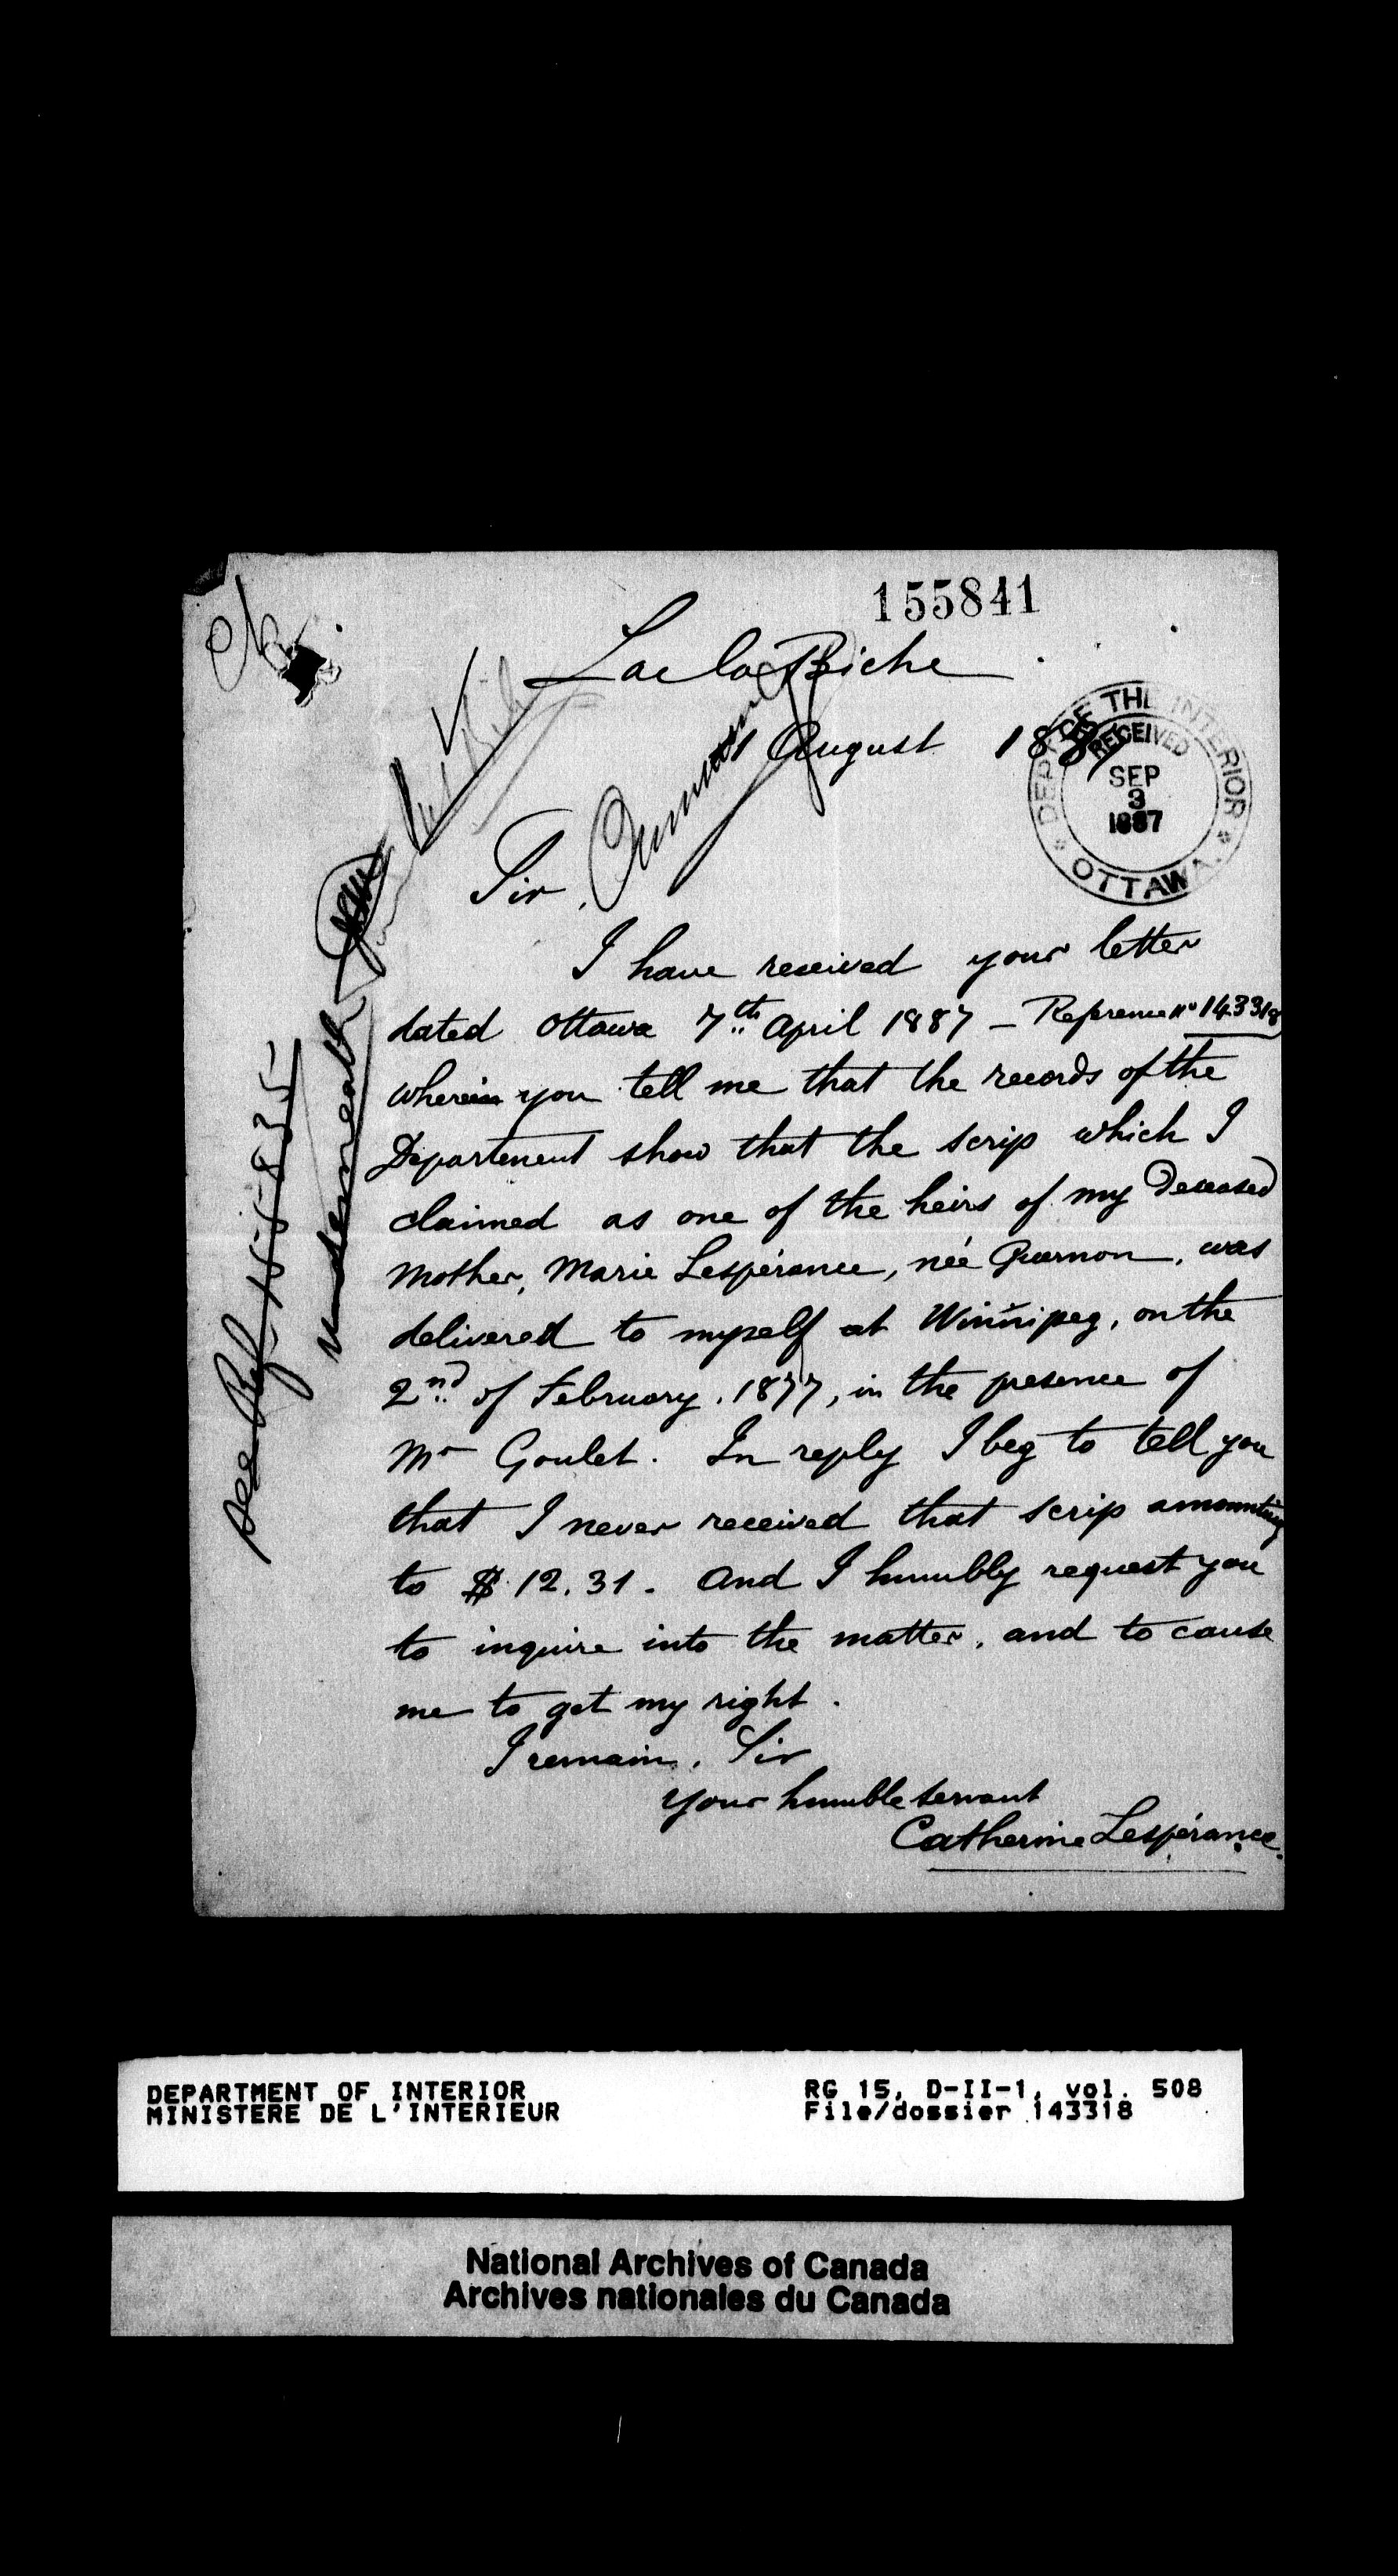 155841
Lac la Biche
August 1887
DEPT OF THE INTERIOR
RECEIVED
SEP
3
1887
OTTAWA
Sir,
I have received your letter
dated Ottawa 7th April 1887 — Reference No 143318
wherein you tell me that the records of the
Department show that the scrip which I
claimed as one of the heirs of my Deceased
Mother, Marie Lespérance, née Guernon, was
delivered to myself at Winnipeg, on the
2nd of February, 1877, in the presence of
Mr Goulet. In reply I beg to tell you
that I never received that scrip amounting
to $ 12.31. And I humbly request you
to inquire into the matter, and to cause
me to get my right.
I remain, Sir
Your humble servant
Catherine Lespérance.
See Ref 155835
underneath
DEPARTMENT OF INTERIOR
MINISTERE DE L'INTERIEUR
RG 15, D-II-1, vol. 508
File/dossier 143318
National Archives of Canada
Archives nationales du Canada